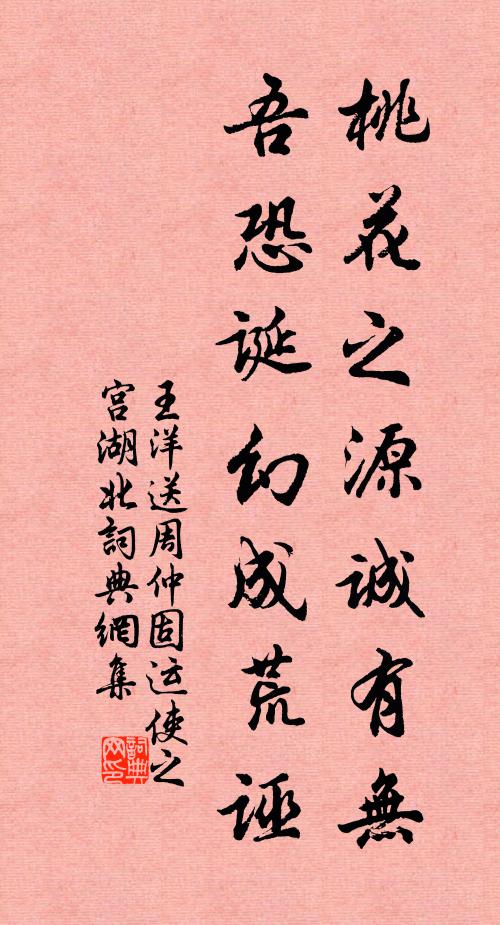 桃花之源誠有無
吾恐誕幻成荒誣
王洋送周仲固运使之
宫湖北詞典網集
詞典网印